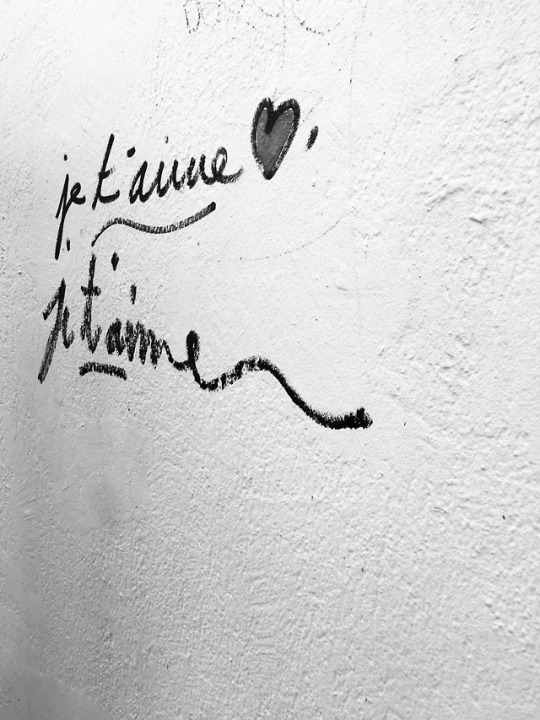 je t'aime ♥,
je t'aime